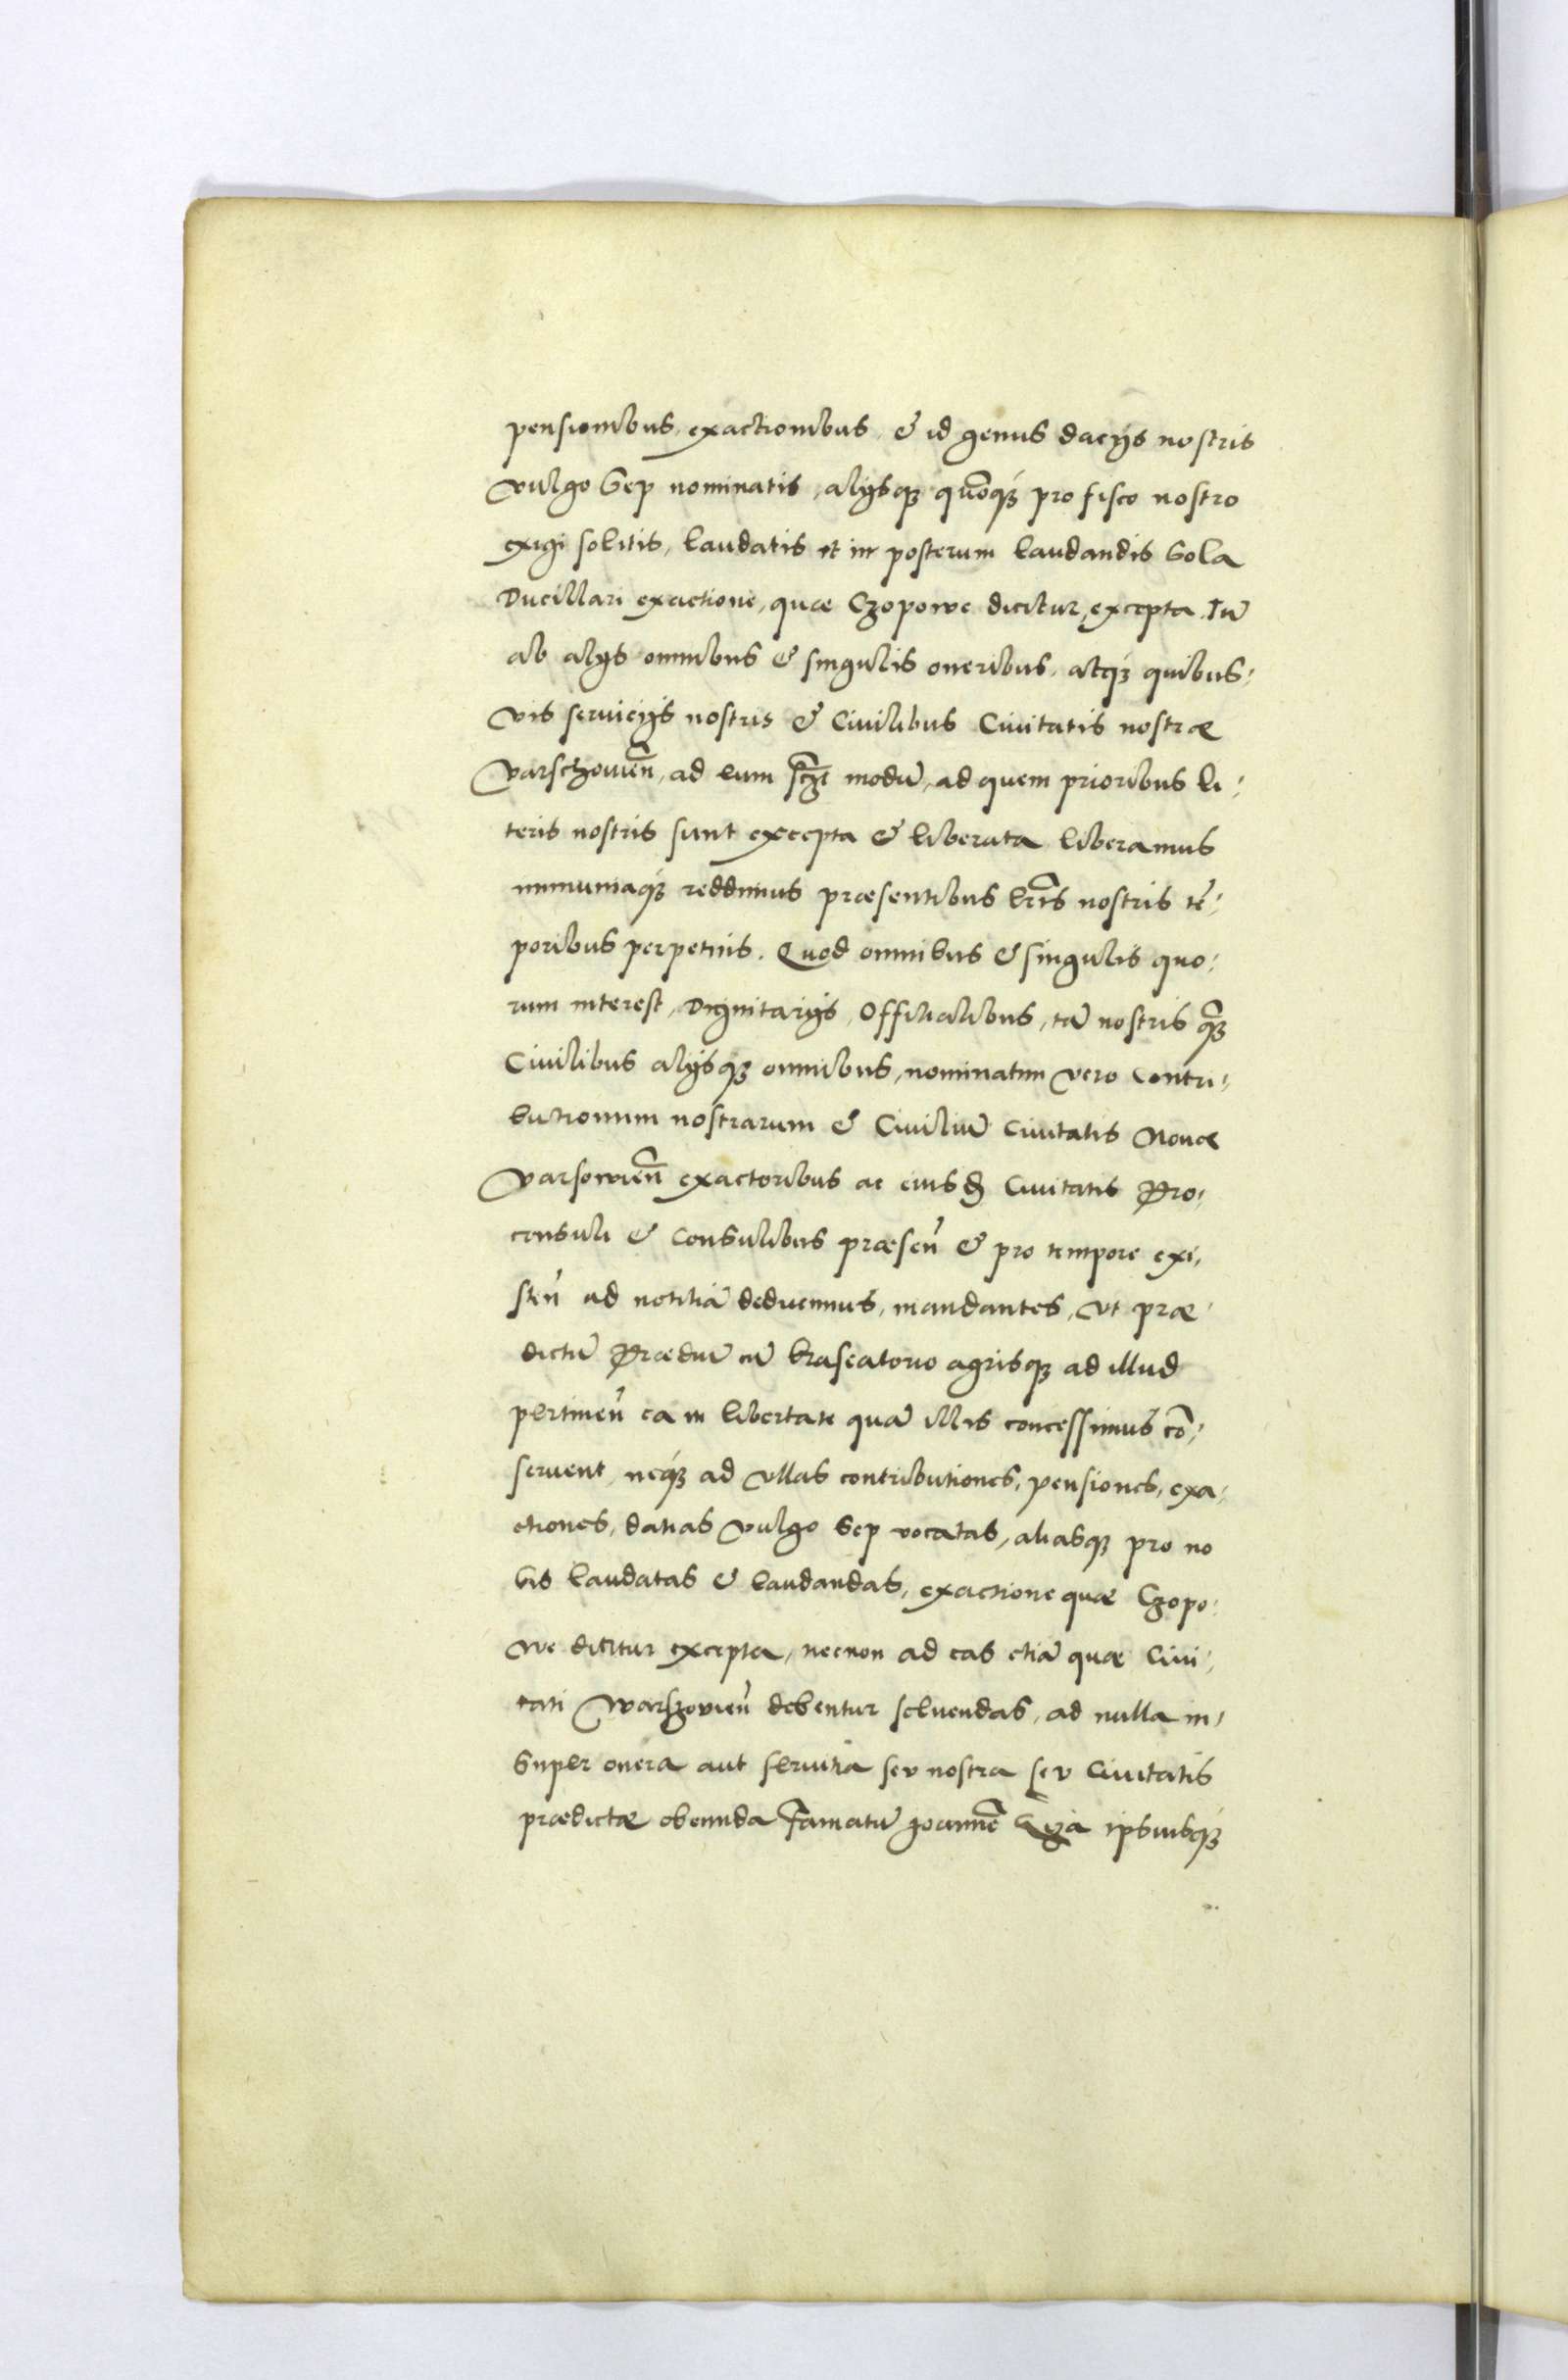 pensionibus, exactionibus, & id genus dacijs nostris
vulgo Sep nominatis, alijsq₃ quōq₃ pro fisco nostro
exigi solitis, laudatis et in posterum laudandis Sola
Ducillari exactione, quæ Czopowe dicitur, excepta. Tū
ab alijs omnibus & singulis oneribus, atq₃ quibus-
vis seruicijs nostris & Ciuilibus Ciuitatis nostræ
Varschouień, ad eum modū, ad quem prioribus li-
teris nostris sunt excepta & liberata liberamus
immuniaq₃ reddimus præsentibus lr̄is nostris tē-
poribus perpetuis. Quod omnibus & singulis quo-
rum interest, Dignitarijs, Officialibus, tā nostris q̄₃
Ciuilibus alijsq₃ omnibus, nominatim vero Contri-
butionum nostrarum & Ciuiliū Ciuitatis Nouæ
Varsowień exactoribus ac eiusđ Ciuitatis Pro-
consuli & Consulibus præseń & pro tempore exi-
steń ad notitiā deducimus, mandantes, vt præ-
dictū Prædiū cū braseatorio agrisq₃ ad illud
pertineń ea in libertate quā illis concessimus cō-
seruent, neq₃ ad vllas contributiones, pensiones, exa-
ctiones, datias vulgo Sep vocatas, aliasq₃ pro no
bis laudatas & laudandas, exactione quæ Czopo-
we dicitur excepta, necnon ad eas etiā quæ Ciui-
tati Warszouień debentur soluendas, ad nulla in-
super onera aut seruitia seu nostra seu Ciuitatis
prædictæ obeunda Famatū Joannē ipsiusq₃